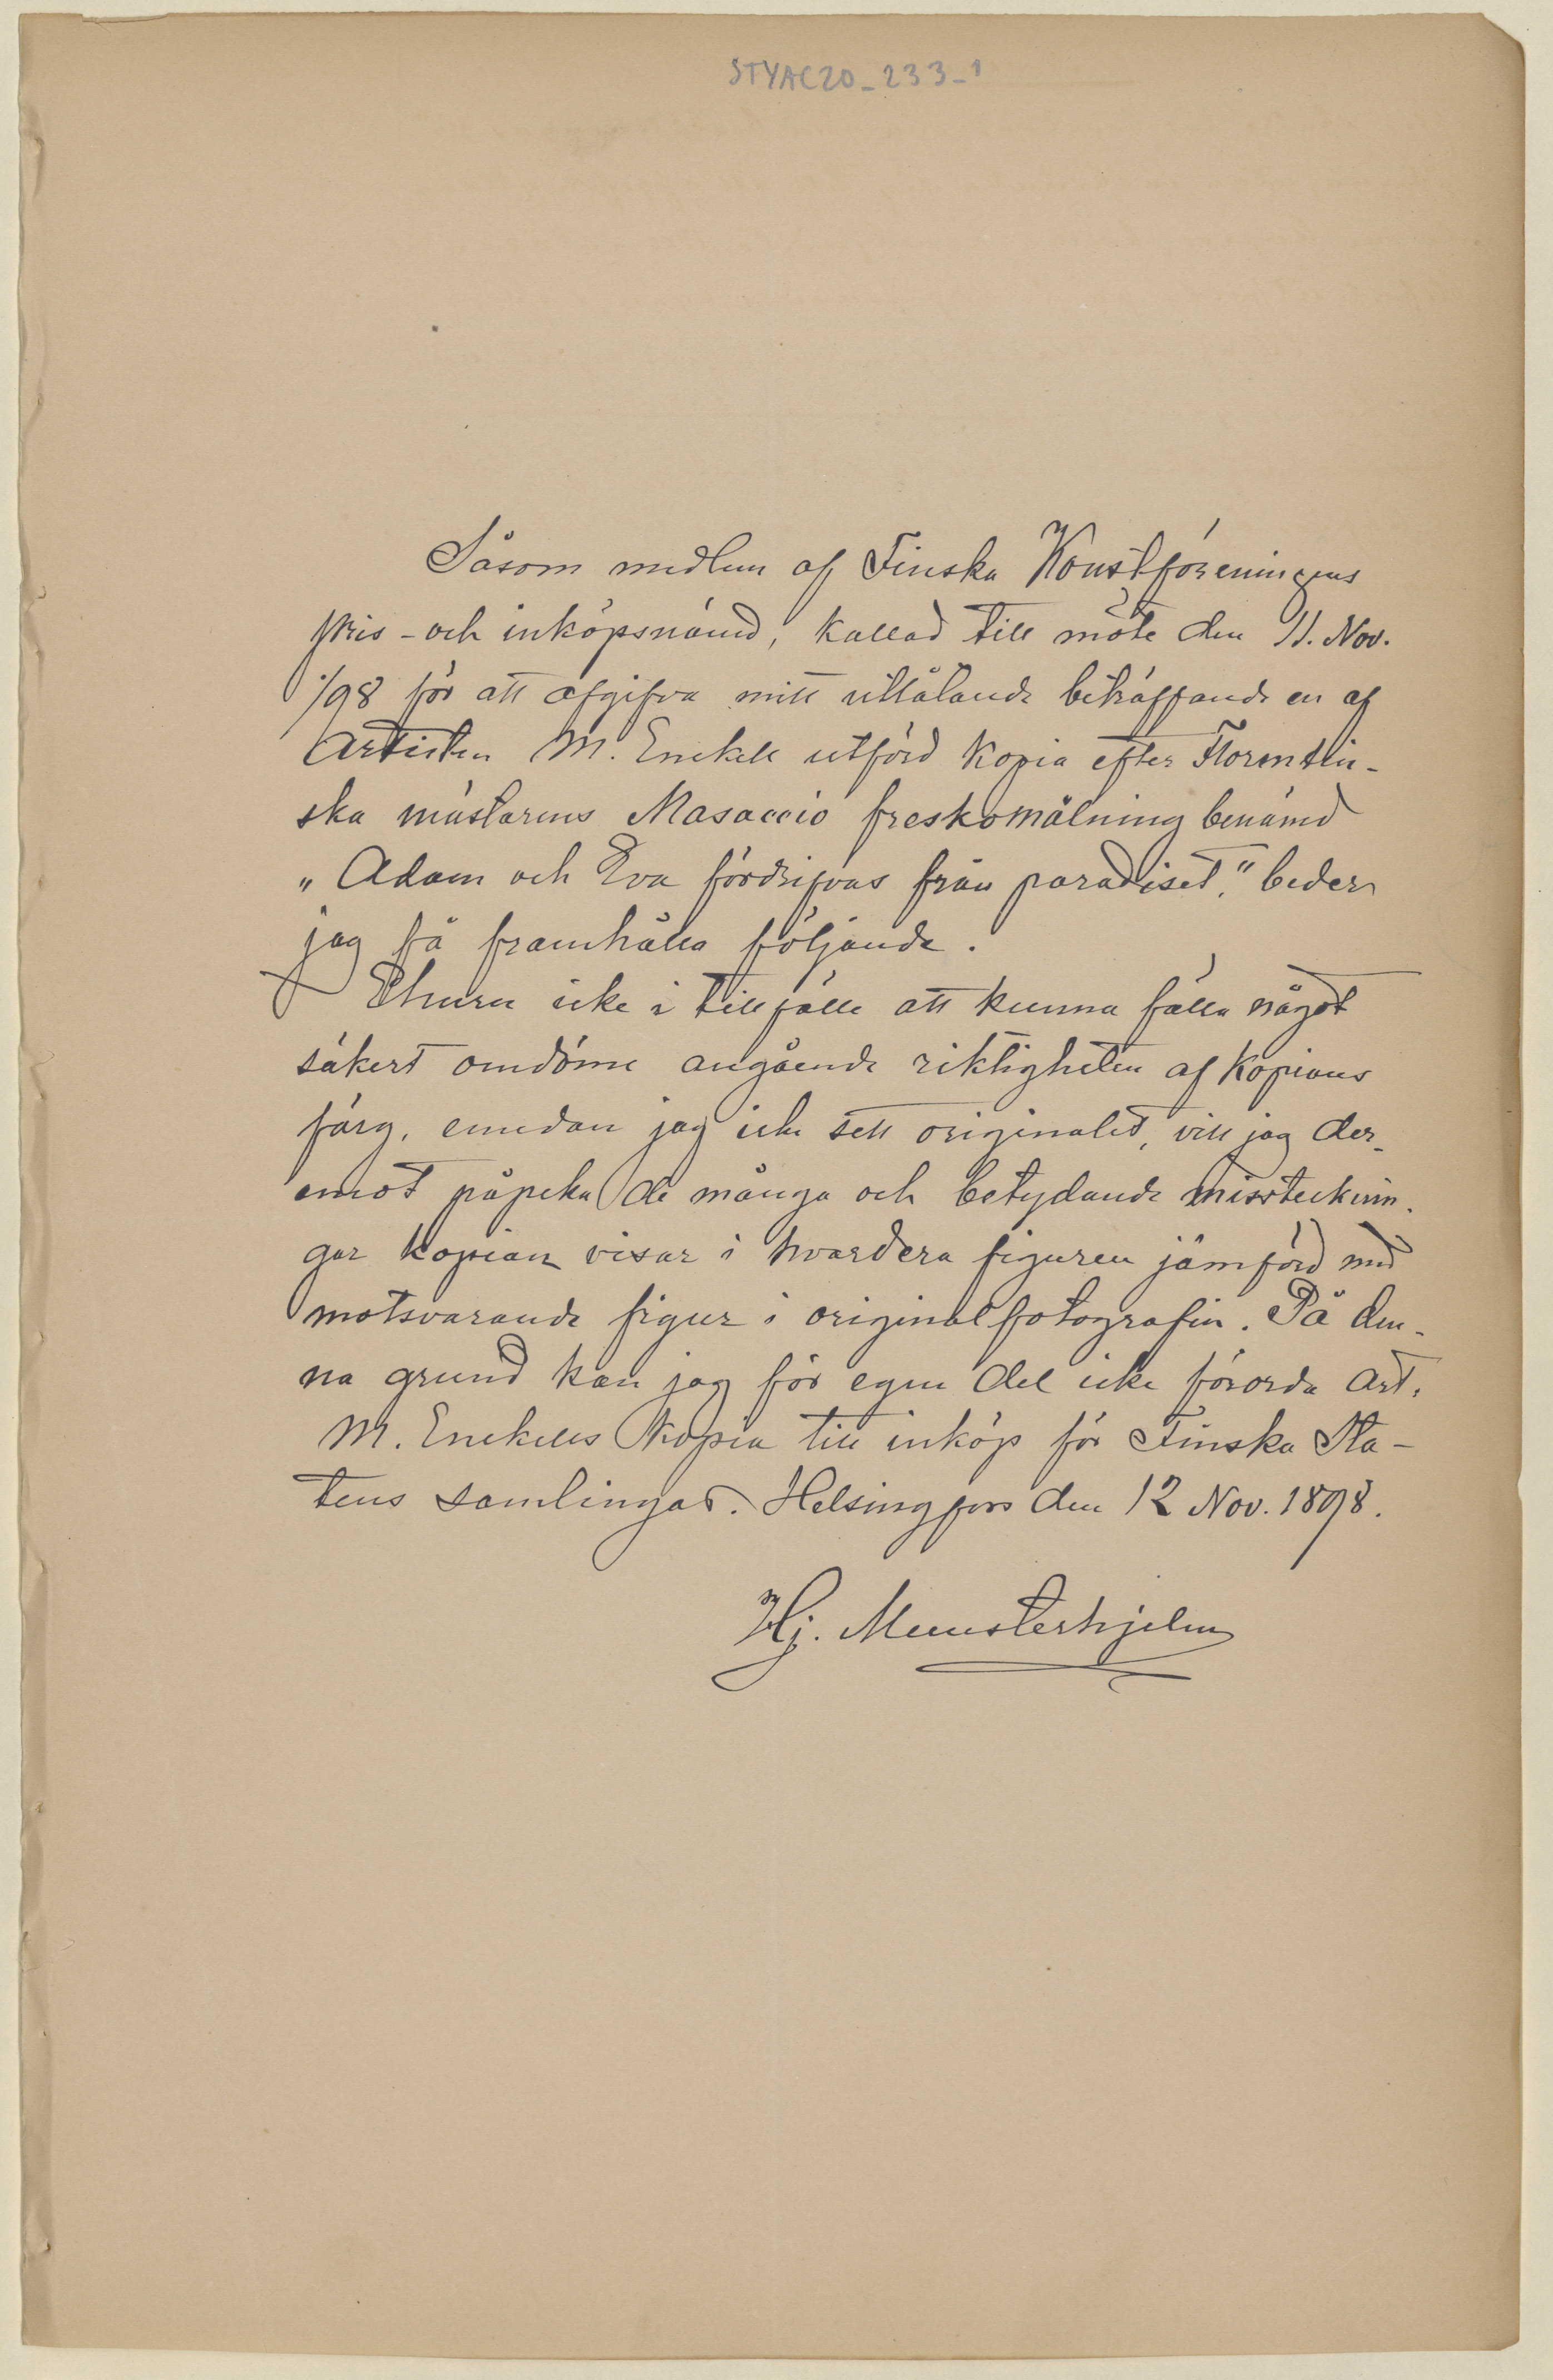 STYAC20_233_1
Såsom medlem af Finska Konstföreningens
pris- och inköpsnämd, kallad till möte den 11. Nov.
/98 för att afgifva mitt uttålande beträffande en af
Artisten M. Enckell utförd kopia efter Florentin-
ska mästarens Masaccio freskomålning benämd
„Adam och Eva fördrifvas från paradiset," beder
jag få framhålla följande.
Ehuru icke i tillfälle att kunna fälla något
säkert omdöme angående riktigheten af kopians
färg, emedan jag icke sett originalet, vill jag der-
emot påpeka de många och betydande misstecknin-
gar kopian visar i hvardera figuren jämförd med
motsvarande figur i originalfotografin. På den-
na grund kan jag för egen del icke förorda Art.
M. Enckells kopia till inköp för Finska Sta-
tens samlingar. Helsingfors den 12 Nov. 1898.
Hj. Munsterhjelm